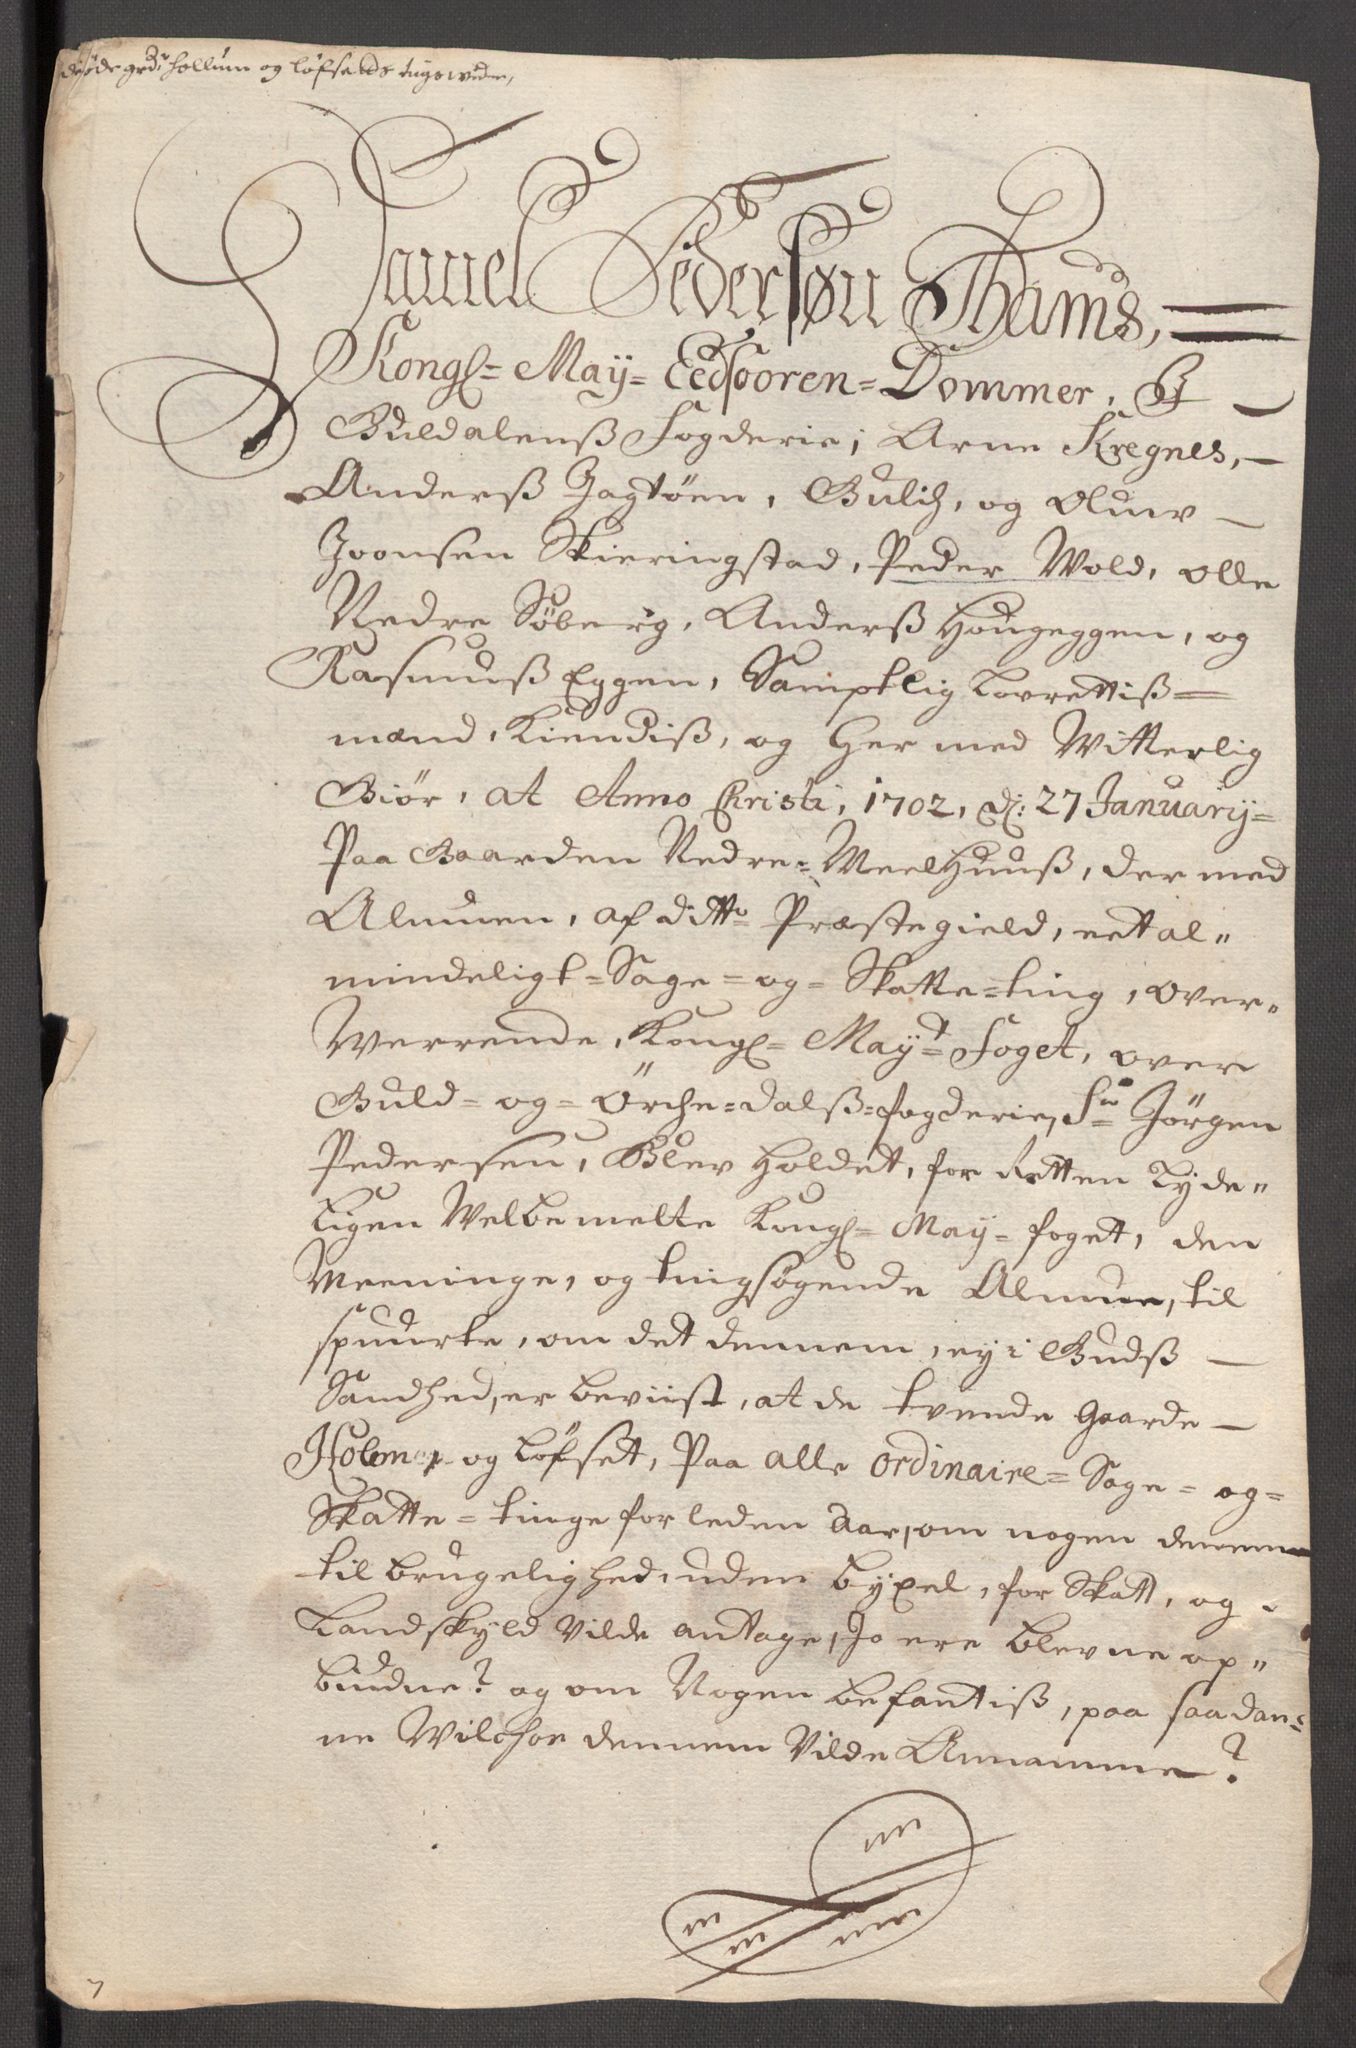 øde grd: hollum og løfsetds tings widne,
Samuel Pedersøn Thams,
Kongl= May= Eedsooren=Dommer, J
Guldalenß Fogderie; Arne Kregnes,
Anderß Jagtøen, Gulich, og Oluuv
Joonsen Skieringstad, Peder Wold, olle
Nedre Søberg, Anderß Hougeggen, og
Rasmuß Eggen, Samptlig Lovrettiß=
mænd, Kiendiß, og Her med Witterlig
Giør, at Anno Christi, 1702, d: 27 Januarij=
Paa Gaarden Nedre=Meelhuuß, der med
Almuen, af ditto Præstegield, eet al=
mindeligt=Sage=og=Skatte=ting, over=
Werrende, Kongl= May:t Foget, over
Guld=og=Örche=dalß=fogderie, Sr Jörgen
Pedersen, Blev Holdet, for Retten Tyde=
ligen Welbemelte Kongl= May= foget, den
Meeninge, og tingsøgende Almue, til
spuurte, om det dennem, ey i Gudß
Sandhed, er beviist, at de tvende Gaarde
Holmen og Løfset, Paa alle ordinaire=Sage=og=
Skatte=tinge forleden Aar, om nogen dennem
til brugelighed, uden byxel, for Skatt, og
Landskyld Vilde antage, Jo ere blevne op=
budne? og om Nogen befantiß, paa saadan=
ne Wilchor dennem Vilde Annamme?
7